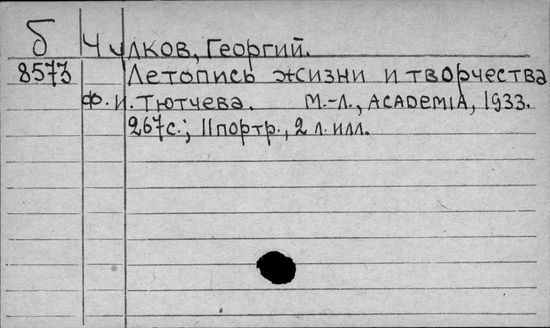 б Чулков, Георгий.
8573 Летопись жизни и творчества
Ф. И. Тютчева. М.-Л., ACADEMIA, 1933.
267с.; 11портр., 2 л. илл.